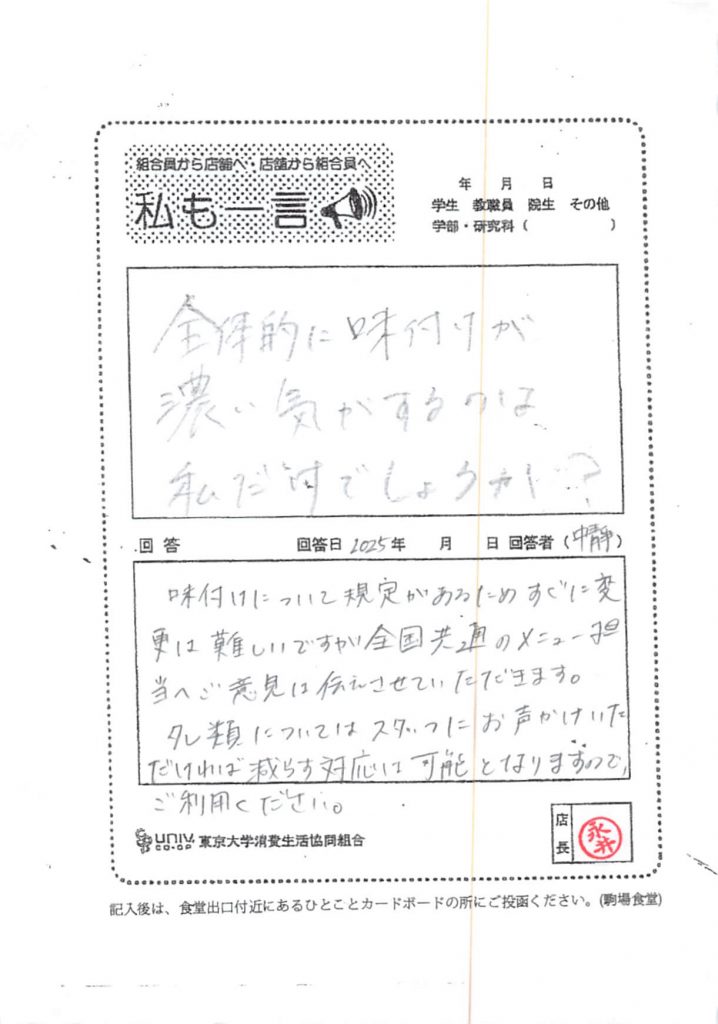 組合員から店舗へ・店舗から組合員へ
私も一言
年 月 日
学生 教職員 院生 その他
学部・研究科（ ）
全体的に味付けが
濃い気がするのは
私だけでしょうか？
回答 回答日 2025年 月 日 回答者（中靜）
味付けについて規定があるためすぐに変
更は難しいですが全国共通のメニュー担
当へご意見は伝えさせていただきます。
タレ類についてはスタッフにお声かけいた
だければ減らす対応は可能となりますので、
ご利用ください。
univ. CO-OP 東京大学消費生活協同組合
店長
永井
記入後は、食堂出口付近にあるひとことカードボードの所にご投函ください。(駒場食堂)